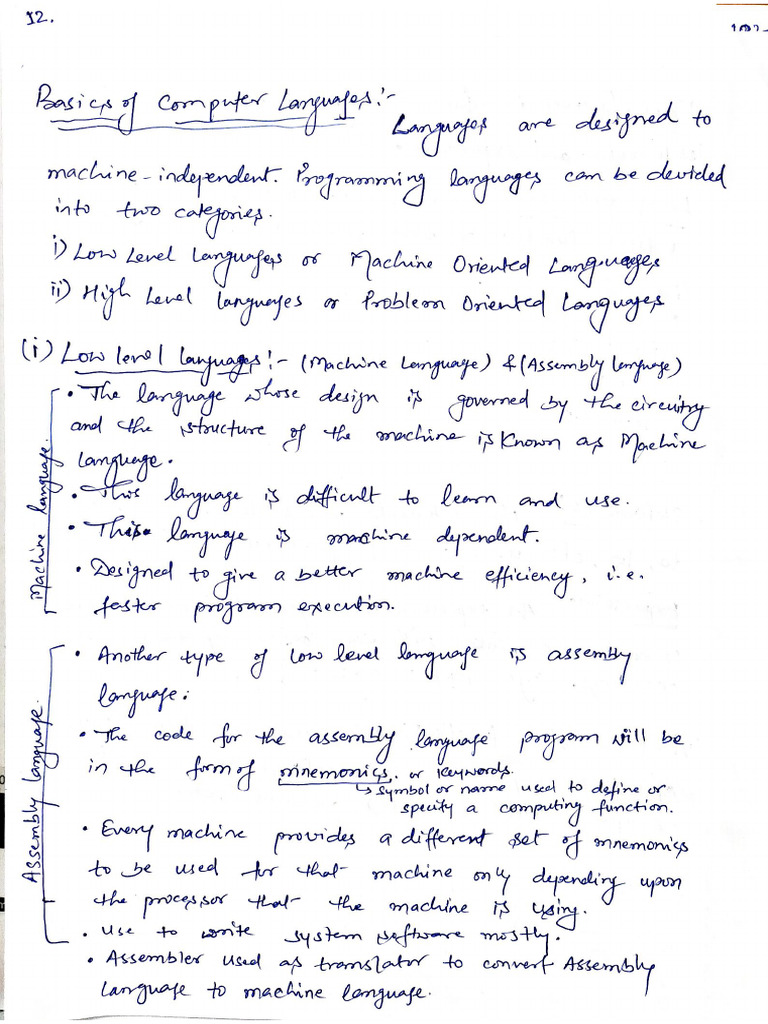 12.
Basics of Computer Languages:-
Languages are designed to
machine-independent. Programming languages can be devided
into two categories.
i) Low Level Languages or Machine Oriented Languages
ii) High Level languages or Problem Oriented Languages
(i) Low level languages:- (Machine Language) & (Assembly language)
Machine language.
• The language whose design is governed by the circuitry
and the structure of the machine is known as Machine
language.
• This language is difficult to learn and use.
• This language is machine dependent.
• Designed to give a better machine efficiency, i.e.
faster program execution.
Assembly language.
• Another type of low level language is assembly
language.
• The code for the assembly language program will be
in the form of mnemonics. or keywords.
↳ symbol or name used to define or
specify a computing function.
• Every machine provides a different set of mnemonics
to be used for that machine only depending upon
the processor that the machine is using.
• Use to write system software mostly.
• Assembler used as translator to convert Assembly
Language to machine language.